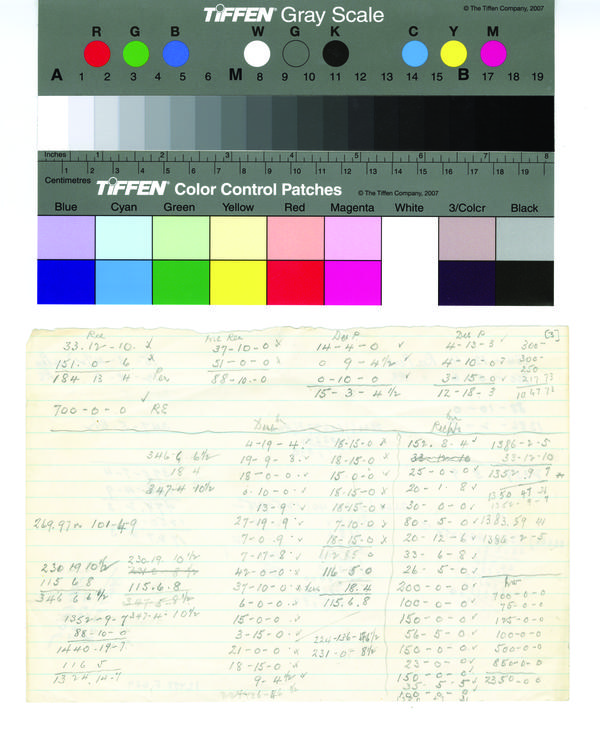 TIFFEN Gray Scale
© The Tiffen Company, 2007
R G B W G K C Y M
A 1 2 3 4 5 6 M 8 9 10 11 12 13 14 15 B 17 18 19
Inches 1 2 3 4 5 6 7 8
Centimetres 1 2 3 4 5 6 7 8 9 10 11 12 13 14 15 16 17 18 19
TIFFEN Color Control Patches
© The Tiffen Company, 2007
Blue Cyan Green Yellow Red Magenta White 3/Color Black
[3]
33-12-10 x 37-10-0 x 14-4-0 4-13-3 300-
151-0-6 x 51-0-0 x 0 9-4½ 4-10-0 300-
184 13 4 88-10-0 0-10-0 3-15-0 250
15-3-4½ 12-18-3
700-0-0 RE
4-19-4 18-15-0 x 152-8-4 1386-2-5
346-6 6½ 19-9-8 18-15-0 x 33-12-10 33-12-10
18 4 18-0-0 15 0-0 25-0-0 1352-9-7
347-4 10½ 0-10-0 18-15-0 x 20-1-8
13-9 18-15-0 x 30-0-0
269.97 101-4-9 27-19-9 7-10-0 80-5-0 1383.59
7-0-9 18-15-0 x 20-12-6 1386-2-5
7-17-8 112 85 0 33-6-8
230 19 10½ 230 19 10½ 42-0-0 116 5 0 26-5-0
115 6 8 115.6.8 37-10-0 x 18.4 200-0-0 700-0-0
346 6 6½ 347-5-8½ 6-0-0 115.6.8 100-0-0 75-0-0
1352-9-7 347-4-10½ 15-0-0 150-0-0 125-0-0
88-10-0 3-15-0 56-5-0 100-0-0
1440-19-7 21-0-0 231-0-8½ 150-0-0 500-0-0
116 5 18-15-0 23-0-0 850-0-0
1324.14.7 9-4½ 150-0-0 2350-0-0
35-5-5